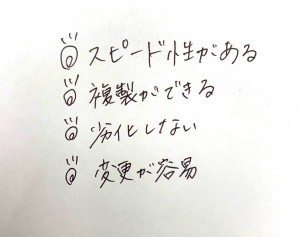 スピード性がある
複製ができる
劣化しない
変更が容易